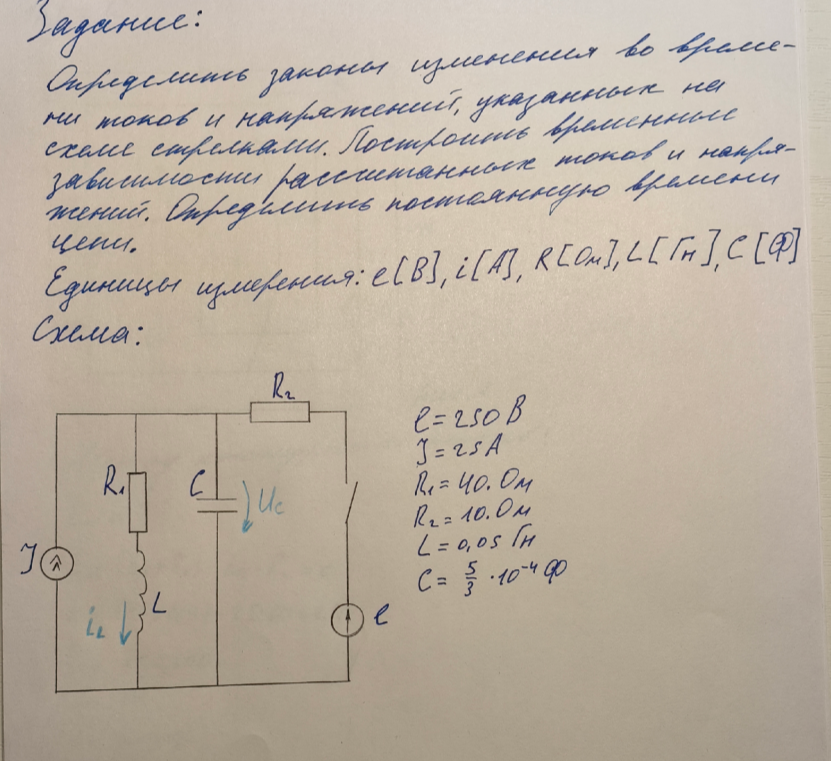 Задание:
Определить законы изменения во време-
ни токов и напряжений, указанных на
схеме стрелками. Построить временные
зависимости рассчитанных токов и напря-
жений. Определить постоянную времени
цепи.
Единицы измерения: e[В], i[А], R[Ом], L[Гн], C[Ф]
Схема:
R₂
R₁
C
Uc
J
L
iL
e
e = 250 В
J = 25 А
R₁ = 40. Ом
R₂ = 10. Ом
L = 0,05 Гн
C = 5/3 · 10⁻⁴ Ф